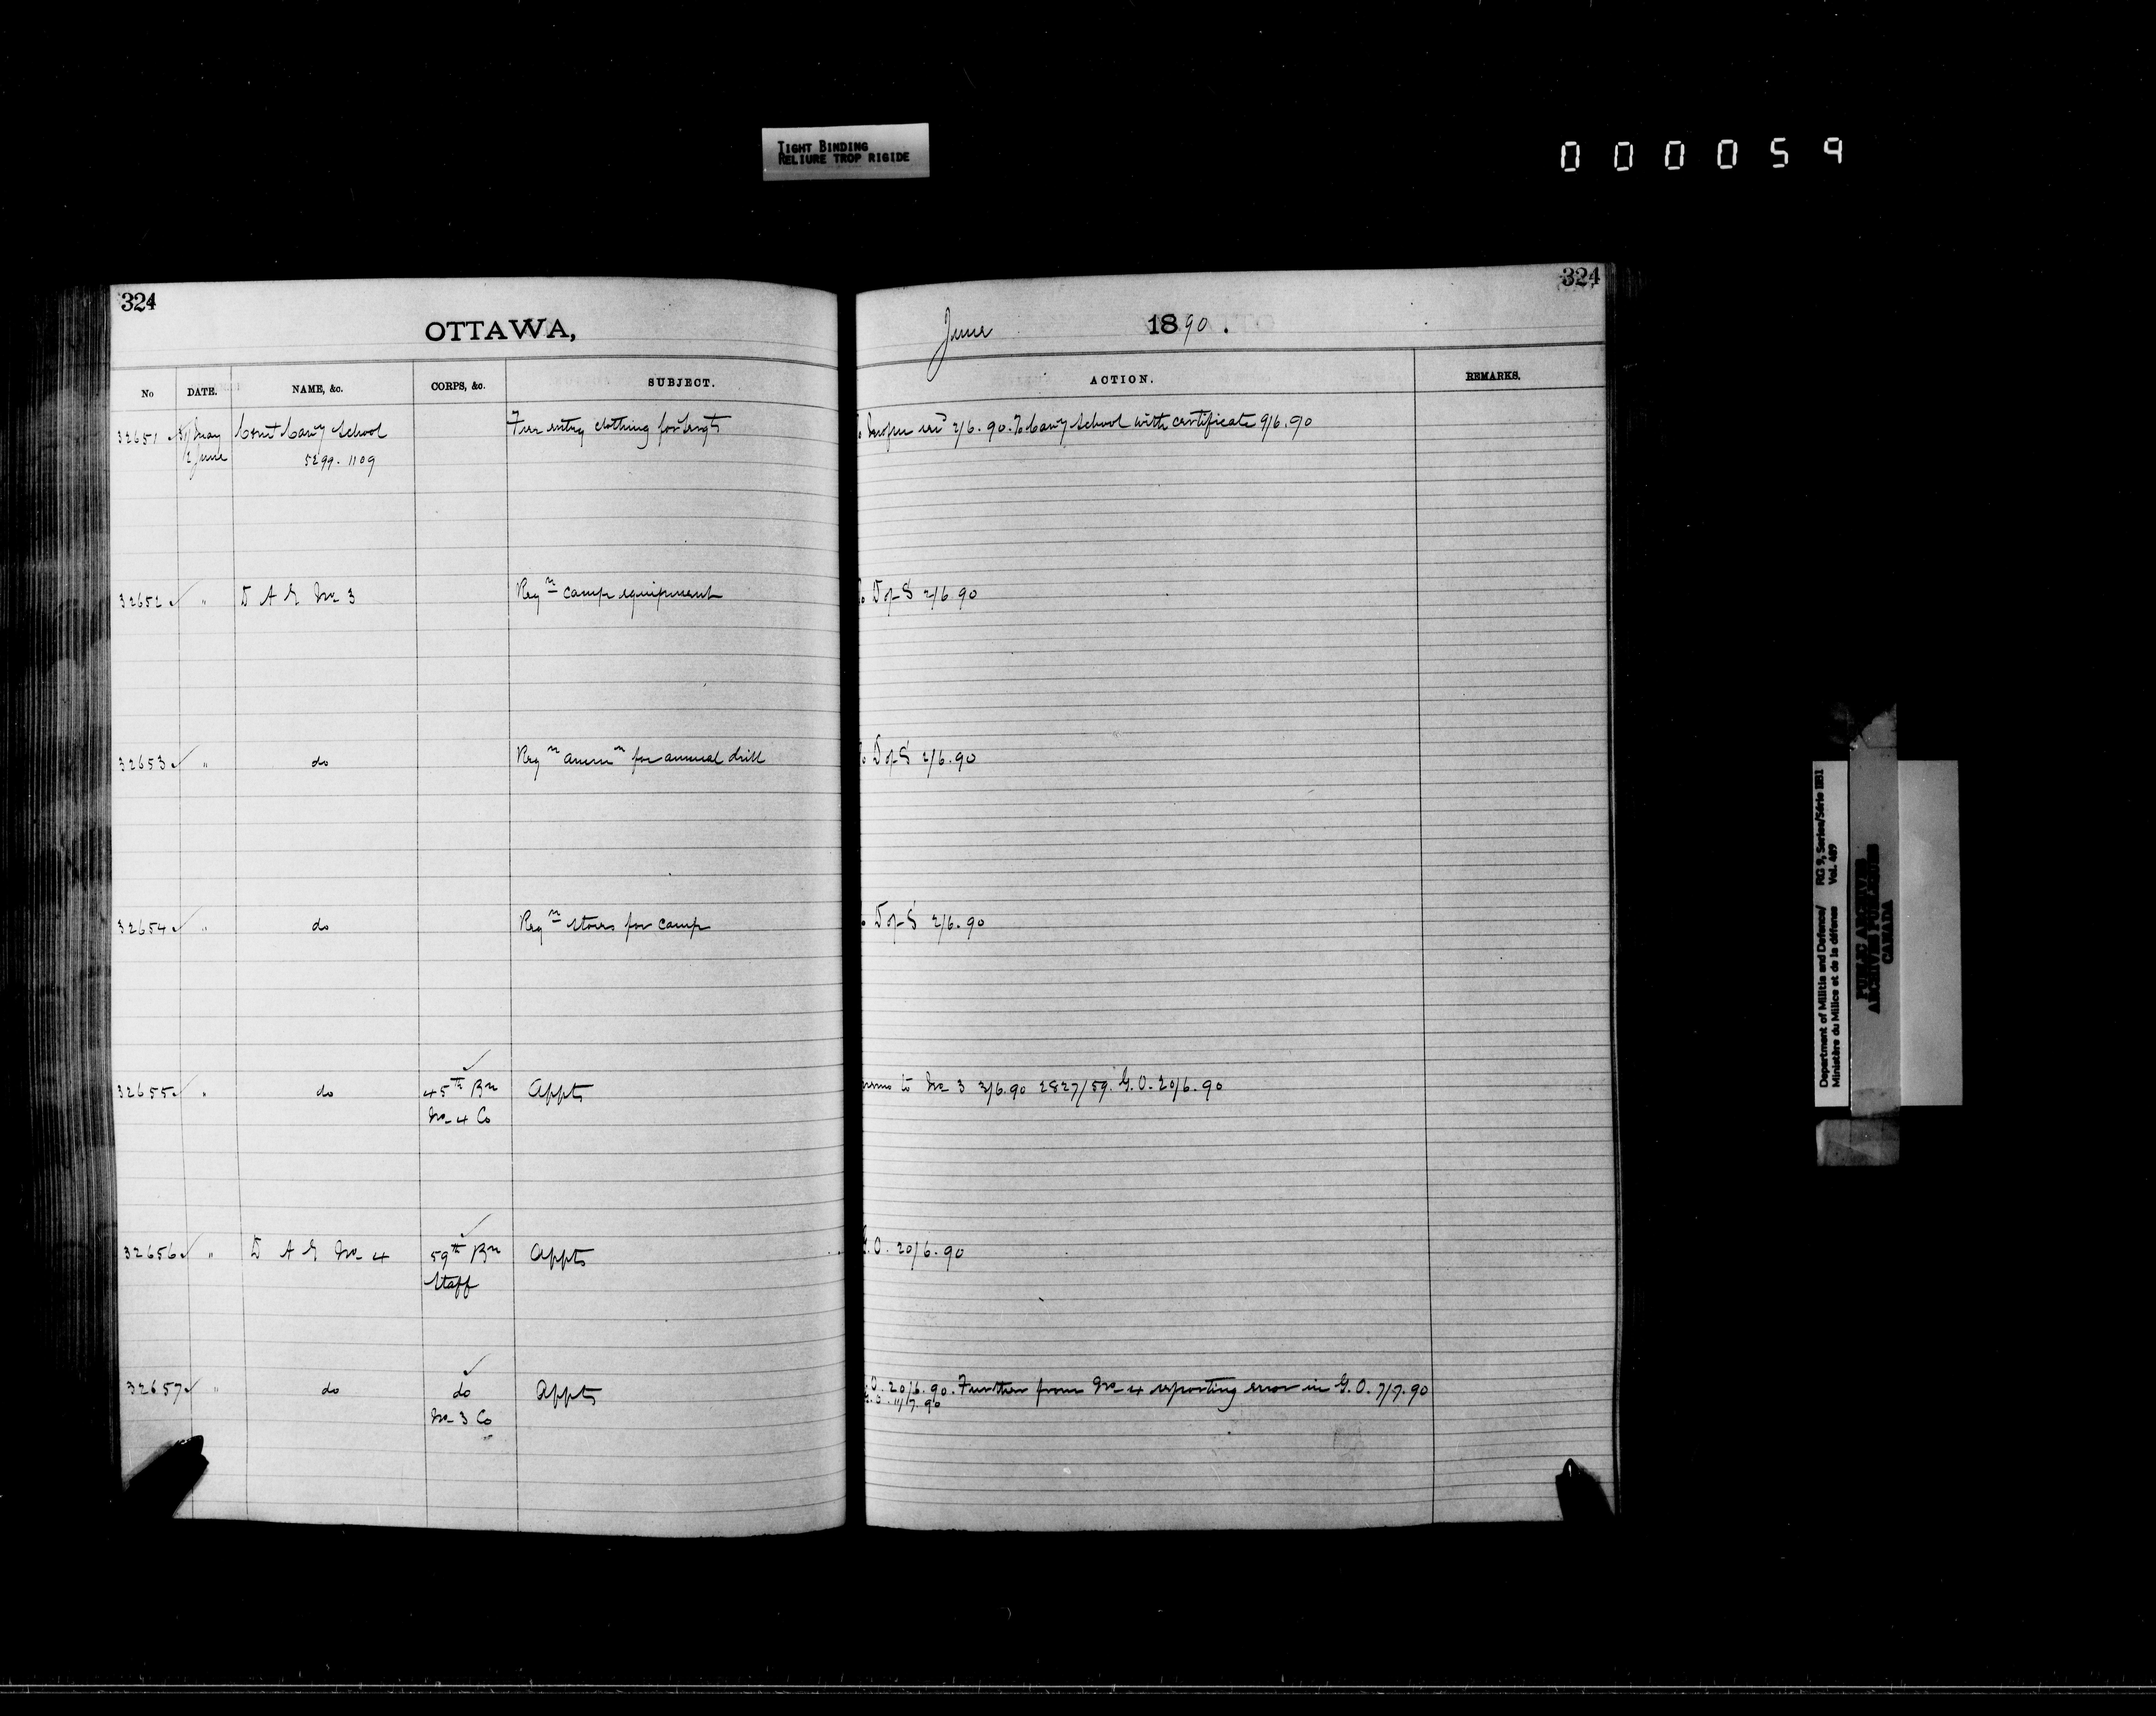 TIGHT BINDING
RELIURE TROP RIGIDE
000059
324
324
OTTAWA,
June 1890.
No DATE. NAME, &c. CORPS, &c. SUBJECT. ACTION. REMARKS.
32651 31 May Comt Cavy School Free entry clothing for Sergts 2/6.90. To Cavy School with certificate 9/6.90
2 June 5299.1109
32652 " D A G No 3 Reqn camp equipment D of S 2/6.90
32653 " do Reqn ammn for annual drill D of S 2/6.90
32654 " do Reqn stores for camp D of S 2/6.90
32655 " do 45th Bn Appts to No 3 3/6.90 2827/59. G.O. 20/6.90
No 4 Co
32656 " D A G No 4 59th Bn Appts G.O. 20/6.90
Staff
32657 " do do Appts G.O. 20/6.90. Further from No 4 reporting error in G.O. 7/7.90
No 3 Co G.O. 11/7.90
Department of Militia and Defence/ RG 9, Series/Série IIB1
Ministère du Milice et de la défense Vol. 489
PUBLIC ARCHIVES
ARCHIVES PUBLIQUES
CANADA